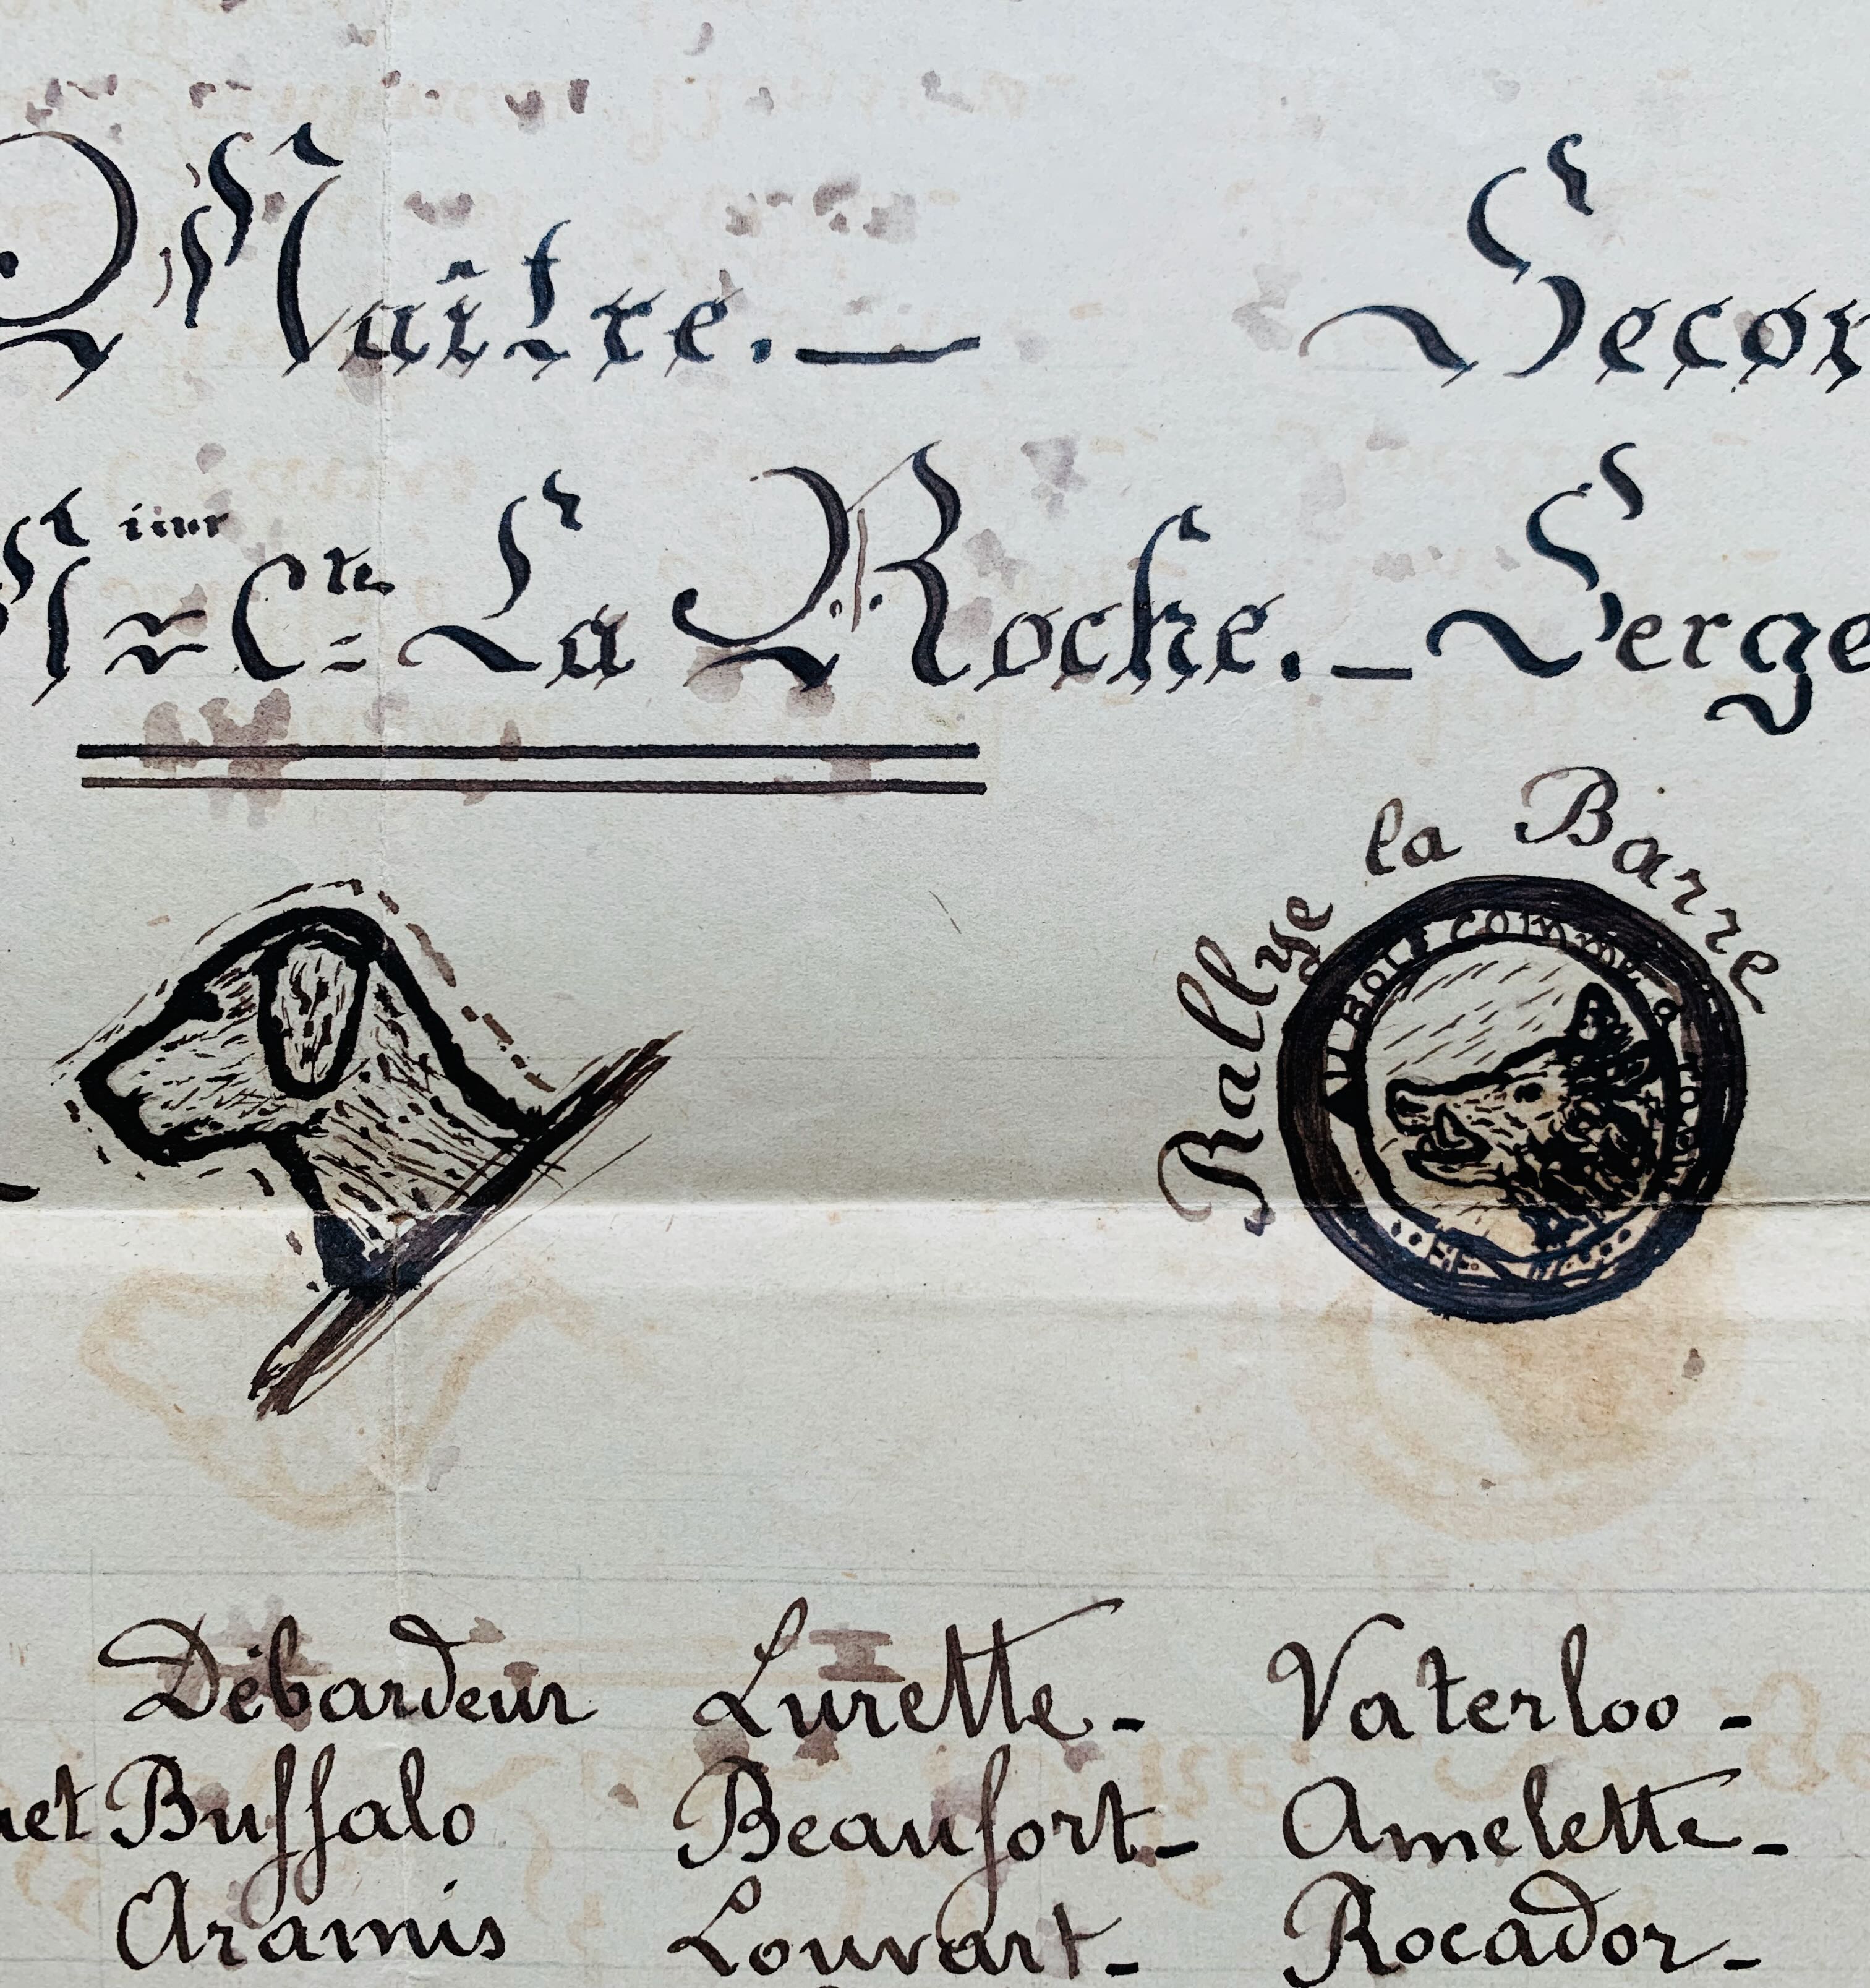 Maître. —
La Roche. —
Rallye la Barre
Au Bois comme
Débardeur Lurette - Vaterloo -
Buffalo Beaufort - Amelette -
Aramis Louvart - Rocador -